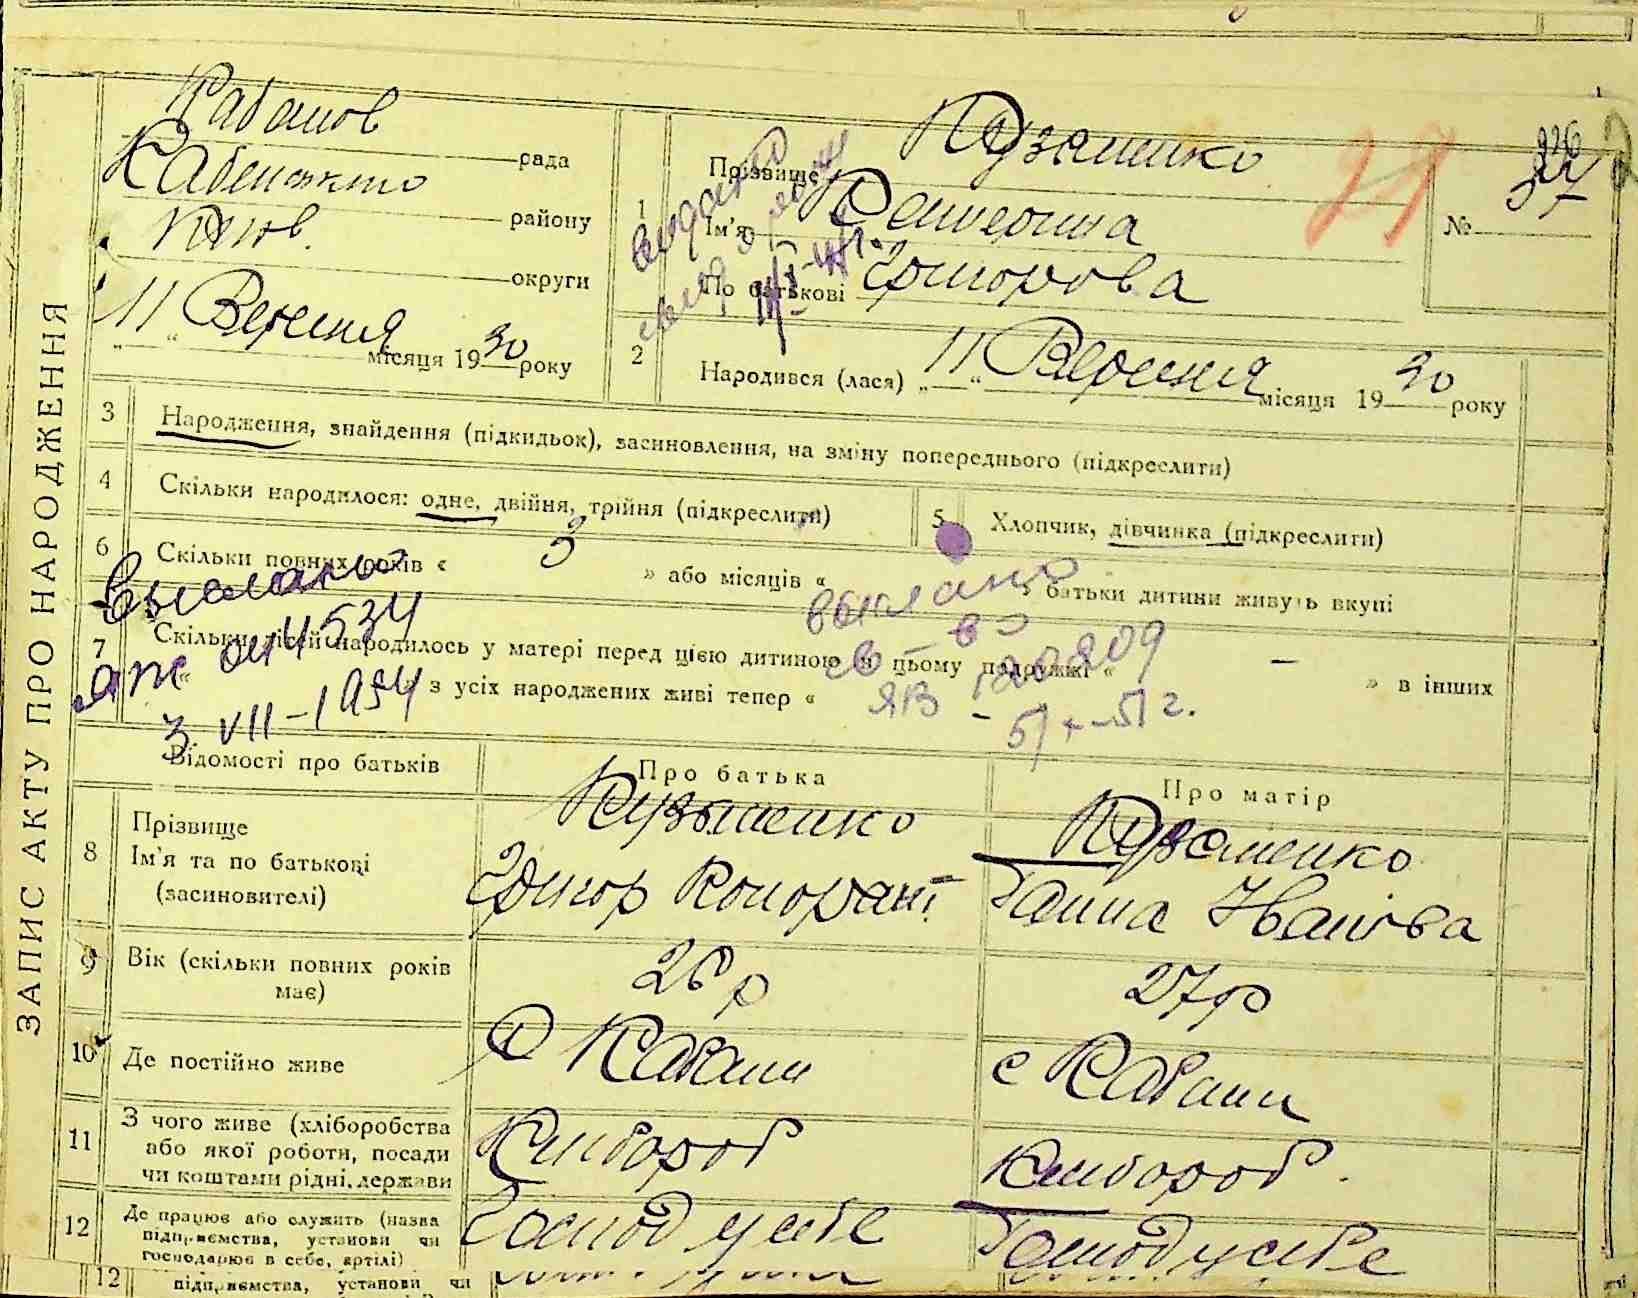 ЗАПИС АКТУ ПРО НАРОДЖЕННЯ
Кабанов рада
району
округи
„11“ Вересня місяця 1930 року
1 Прізвище Кузьменко
Ім'я Катерина
По батькові Григорова
№ 37
29
видано
2 Народився (лася) „11“ Вересня місяця 1930 року
3 Народження, знайдення (підкидьок), засиновлення, на зміну попереднього (підкреслити)
4 Скільки народилося: одне, двійня, трійня (підкреслити)
5 Хлопчик, дівчинка (підкреслити)
6 Скільки повних років « 3 » або місяців « батьки дитини живуть вкупі
7 Скільки дітей народилось у матері перед цією дитиною в цьому подружжі « – » в інших
« з усіх народжених живі тепер «
Выслано
ЯЖ 044534
3 VII-1954
выслано
св-во
ЯВ
5/x-51 г.
Відомості про батьків
Про батька
Про матір
8 Прізвище
Ім'я та по батькові
(засиновителі)
Кузьменко
Григор
Кузьменко
Ганна Іванова
9 Вік (скільки повних років має)
26 р
27 р
10 Де постійно живе
с Кабани
с Кабани
11 З чого живе (хліборобства
або якої роботи, посади
чи коштами рідні, держави
Хлибороб
Хлибороб.
12 Де працює або служить (назва
підприємства, установи чи
господарює в себе, артілі)
Господ у себе
Господ у себе
12 підприємства, установи чи